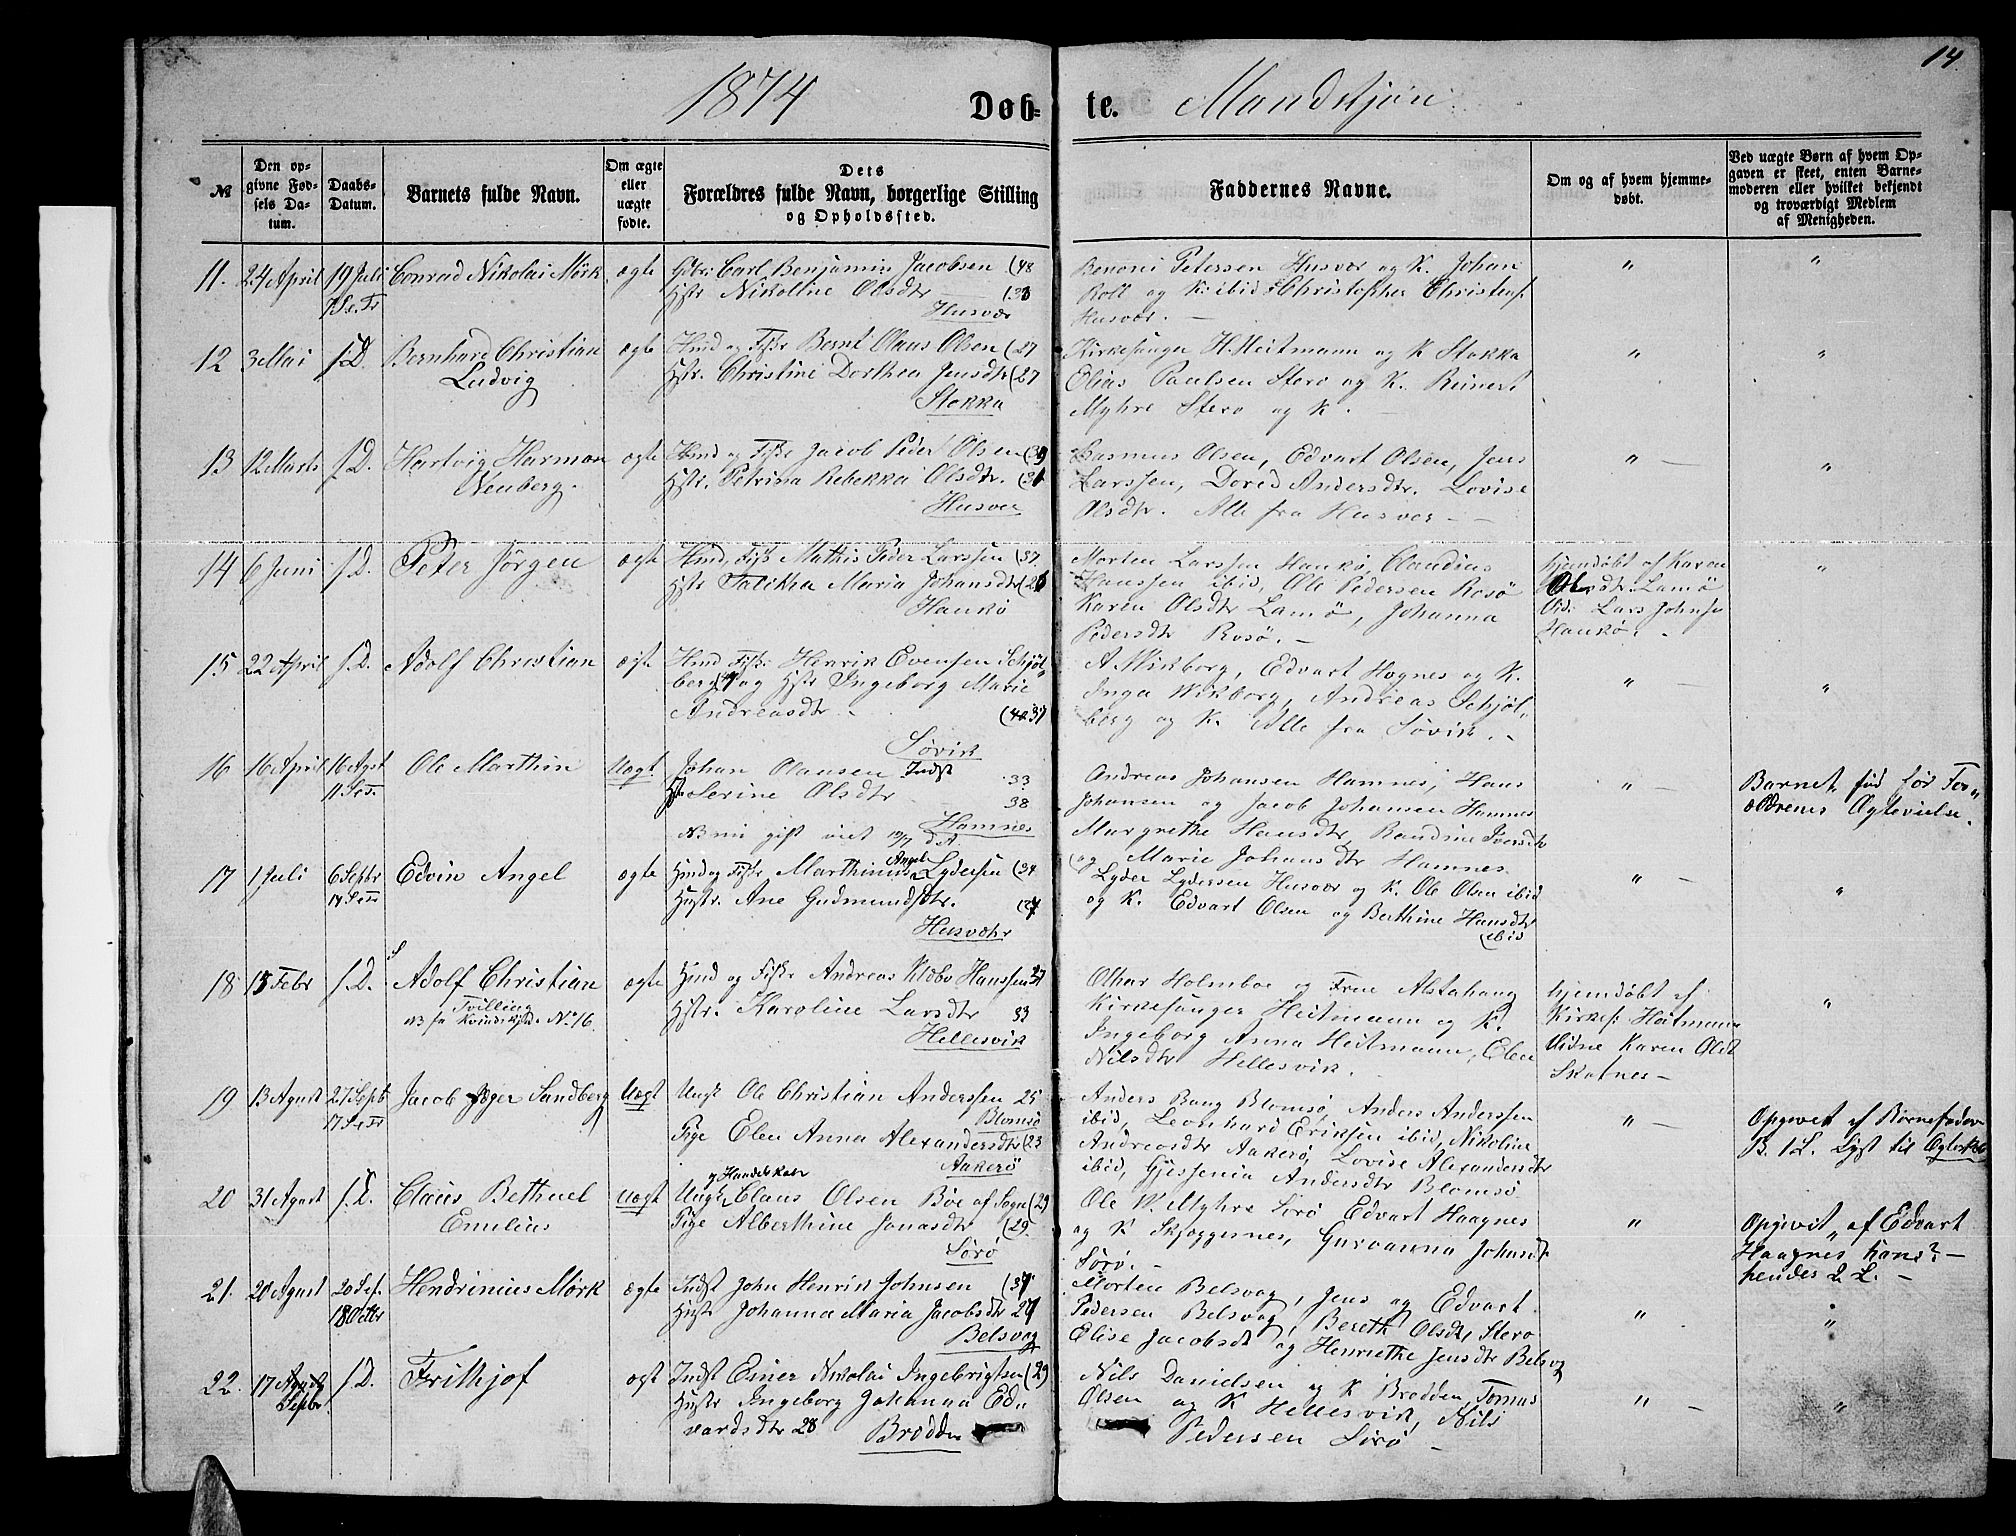 14
1874 Døb= te. Mandkjøn
№
Den op=
givne Fød=
sels Da=
tum.
Daabs=
Datum.
Barnets fulde Navn.
Om ægte
eller
uægte
fødte.
Dets
Forældres fulde Navn, borgerlige Stilling
og Opholdssted.
Faddernes Navne.
Om og af hvem hjemme=
døbt.
Ved uægte Børn af hvem Op=
gaven er skeet, enten Barne=
moderen eller hvilket bekjendt
og troværdigt Medlem
af Menigheden.
11. 24 April 19 Juli Conrad Nikolai Mørk ægte Carl Benjamin Jacobsen (48
Hstr Nikoline Olsdtr (38
Husvær
Benoni Petersen Husvær og K. Johan
Roll og K. ibid Christopher Christens.
Husvær. " "
12 3 Mai s.D. Bernhard Christian
Ludvig
ægte Hmd og Fisk Bernt Olaus Olsen (27
Hstr. Christine Dorthea Jensdtr (27
Stokka
Kirkesanger H. Heitmann og K Stokka
Elias Paulsen Stero og K. Reinert
Myhre Stero og K. " "
13 12 Marts s.D. Hartvig Harman
Neuberg.
ægte Hmd og Fisk Jacob Peder Olsen (39
Hstr. Petrina Rebekka Olsdtr. (31
Husvær
Rasmus Olsen, Edvart Olsen, Jens
Larssen, Dored Andersdtr. Lovise
Olsdtr. Alle fra Husver " "
14 6 Juni s.D. Peter Jørgen ægte Hmd, Fisk Mathis Peder Larssen (37
Hstr Talikka Maria Johansdtr (26
Haukø
Morten Larssen Haukø, Claudius
Hanssen ibid, Ole Pedersen Rosø
Karen Olsdtr Lamø, Johanna
Pedersdtr Rosø.
hjemdøbt af Karen
Olsdtr Lamø
Vid: Lars Johns.
Haukø. "
15 22 April s.D. Adolf Christian ægte Hmd Fisk: Henrik Evensen Schjøl
berg og Hstr Ingeborg Marie
Andreasdtr
Søvik
A. Wikborg, Edvart Hognes og K.
Inga Wikborg, Andreas Schjøl
berg og K. Alle fra Søvik. " "
16 16 April 16 Agst Ole Marthin Uægt Johan Olausen Indst 33
Hstr Serine Olsdtr 38
Hamnes
NB nu gift viet 19/7 d.A.
Andreas Johansen Hamnes, Hans
Johansen og Jacob Johansen Hamnes
Margrethe Hansdtr, Randine Iversdtr
og Marie Johansdtr Hamnes. "
Barnet fød før For
ældrenes Ægtevielse.
17 1 Juli 6 Septbr Edvin Angel ægte Hmd og Fisk Marthinus Angel Lydersen (34
Hustr. Ane Gudmundsdtr. (27
Husvæhr
Lyder Lydersen Husvær og K. Ole Olsen ibid
og K. Edvart Olsen og Berthine Hansdtr
ibid " "
18 15 Febr s.D. Adolf Christian
Tvilling
NB fr Kvindekjøn No 16.
ægte Hmd og Fisk Andreas Klæbo Hanssen 37
Hstr. Karoline Larsdtr 33
Hellesvik
Othar Holmboe og Frue Alstahaug
Kirkesanger Heitmann og K.
Ingeborg Anna Heitmann, Elen
Nilsdtr Hellesvik.
hjemdøbt af
Kirkes: Heitmann
Vidne Karen Olsdt
Skatnes "
19 13 Agust 27 Septb Jacob Jæger Sandberg Uægt Ungk Ole Christian Anderssen 25
Blomsø
Pige Elen Anna Alexandersdtr (23
Aakerø
Anders Bang Blomsø, Anders Anderssen
ibid, Leonhard Eriksen ibid, Nikoline
Andreasdtr Aakerø, Lovise Alexandersdtr
ibid, Gjessenia Andersdtr Blomsø "
Opgivet af Barnefader
B. 1 L. Lyst til Ægtesk
20 31 Agust s.D. Claus Bethuel
Emilius
Uægt Ungk og Handelskar Claus Olsen Bøe af Sogn (29
Pige Alberthine Jonasdtr (29.
Sørø
Ole W. Myhre Sørø Edvart Haagnes
og K Skjeggernes, Guroanna Johansdt
Sørø. "
Opgivet af Edvart
Haagnes hans?
hendes 2 L.
21. 20 Agust 20 Sep. Hendrinius Mørk ægte Indst John Henrik Johnsen (37
Hustr Johanna Maria Jacobsdtr 27
Belsvag
Morten Belsvag, Jens og Edvart
Pedersen Belsvag, Bereth Olsdtr Stero
Elise Jacobsdt og Henriethe Jensdtr Belsvag " "
22. 17 Septbr. s.D. Frithjof ægt Indst Einer Nikolai Ingebrigtsen (29
Hustr Ingeborg Johanna Ed
vardsdtr 28 Brodden
Nils Danielsen og K Brodden, Tomas
Olsen og K Hellesvik, Nils
Pedersen Sørø " "